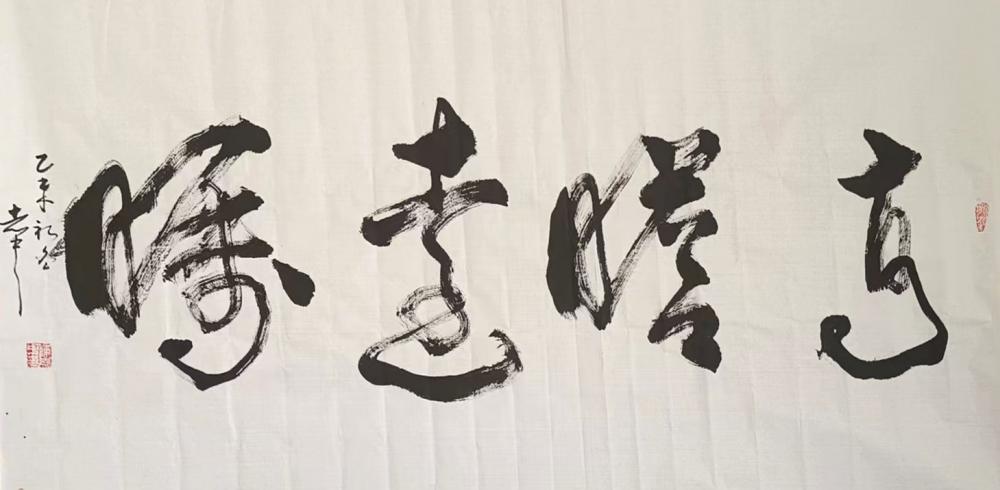 高瞻遠瞩
乙未初冬